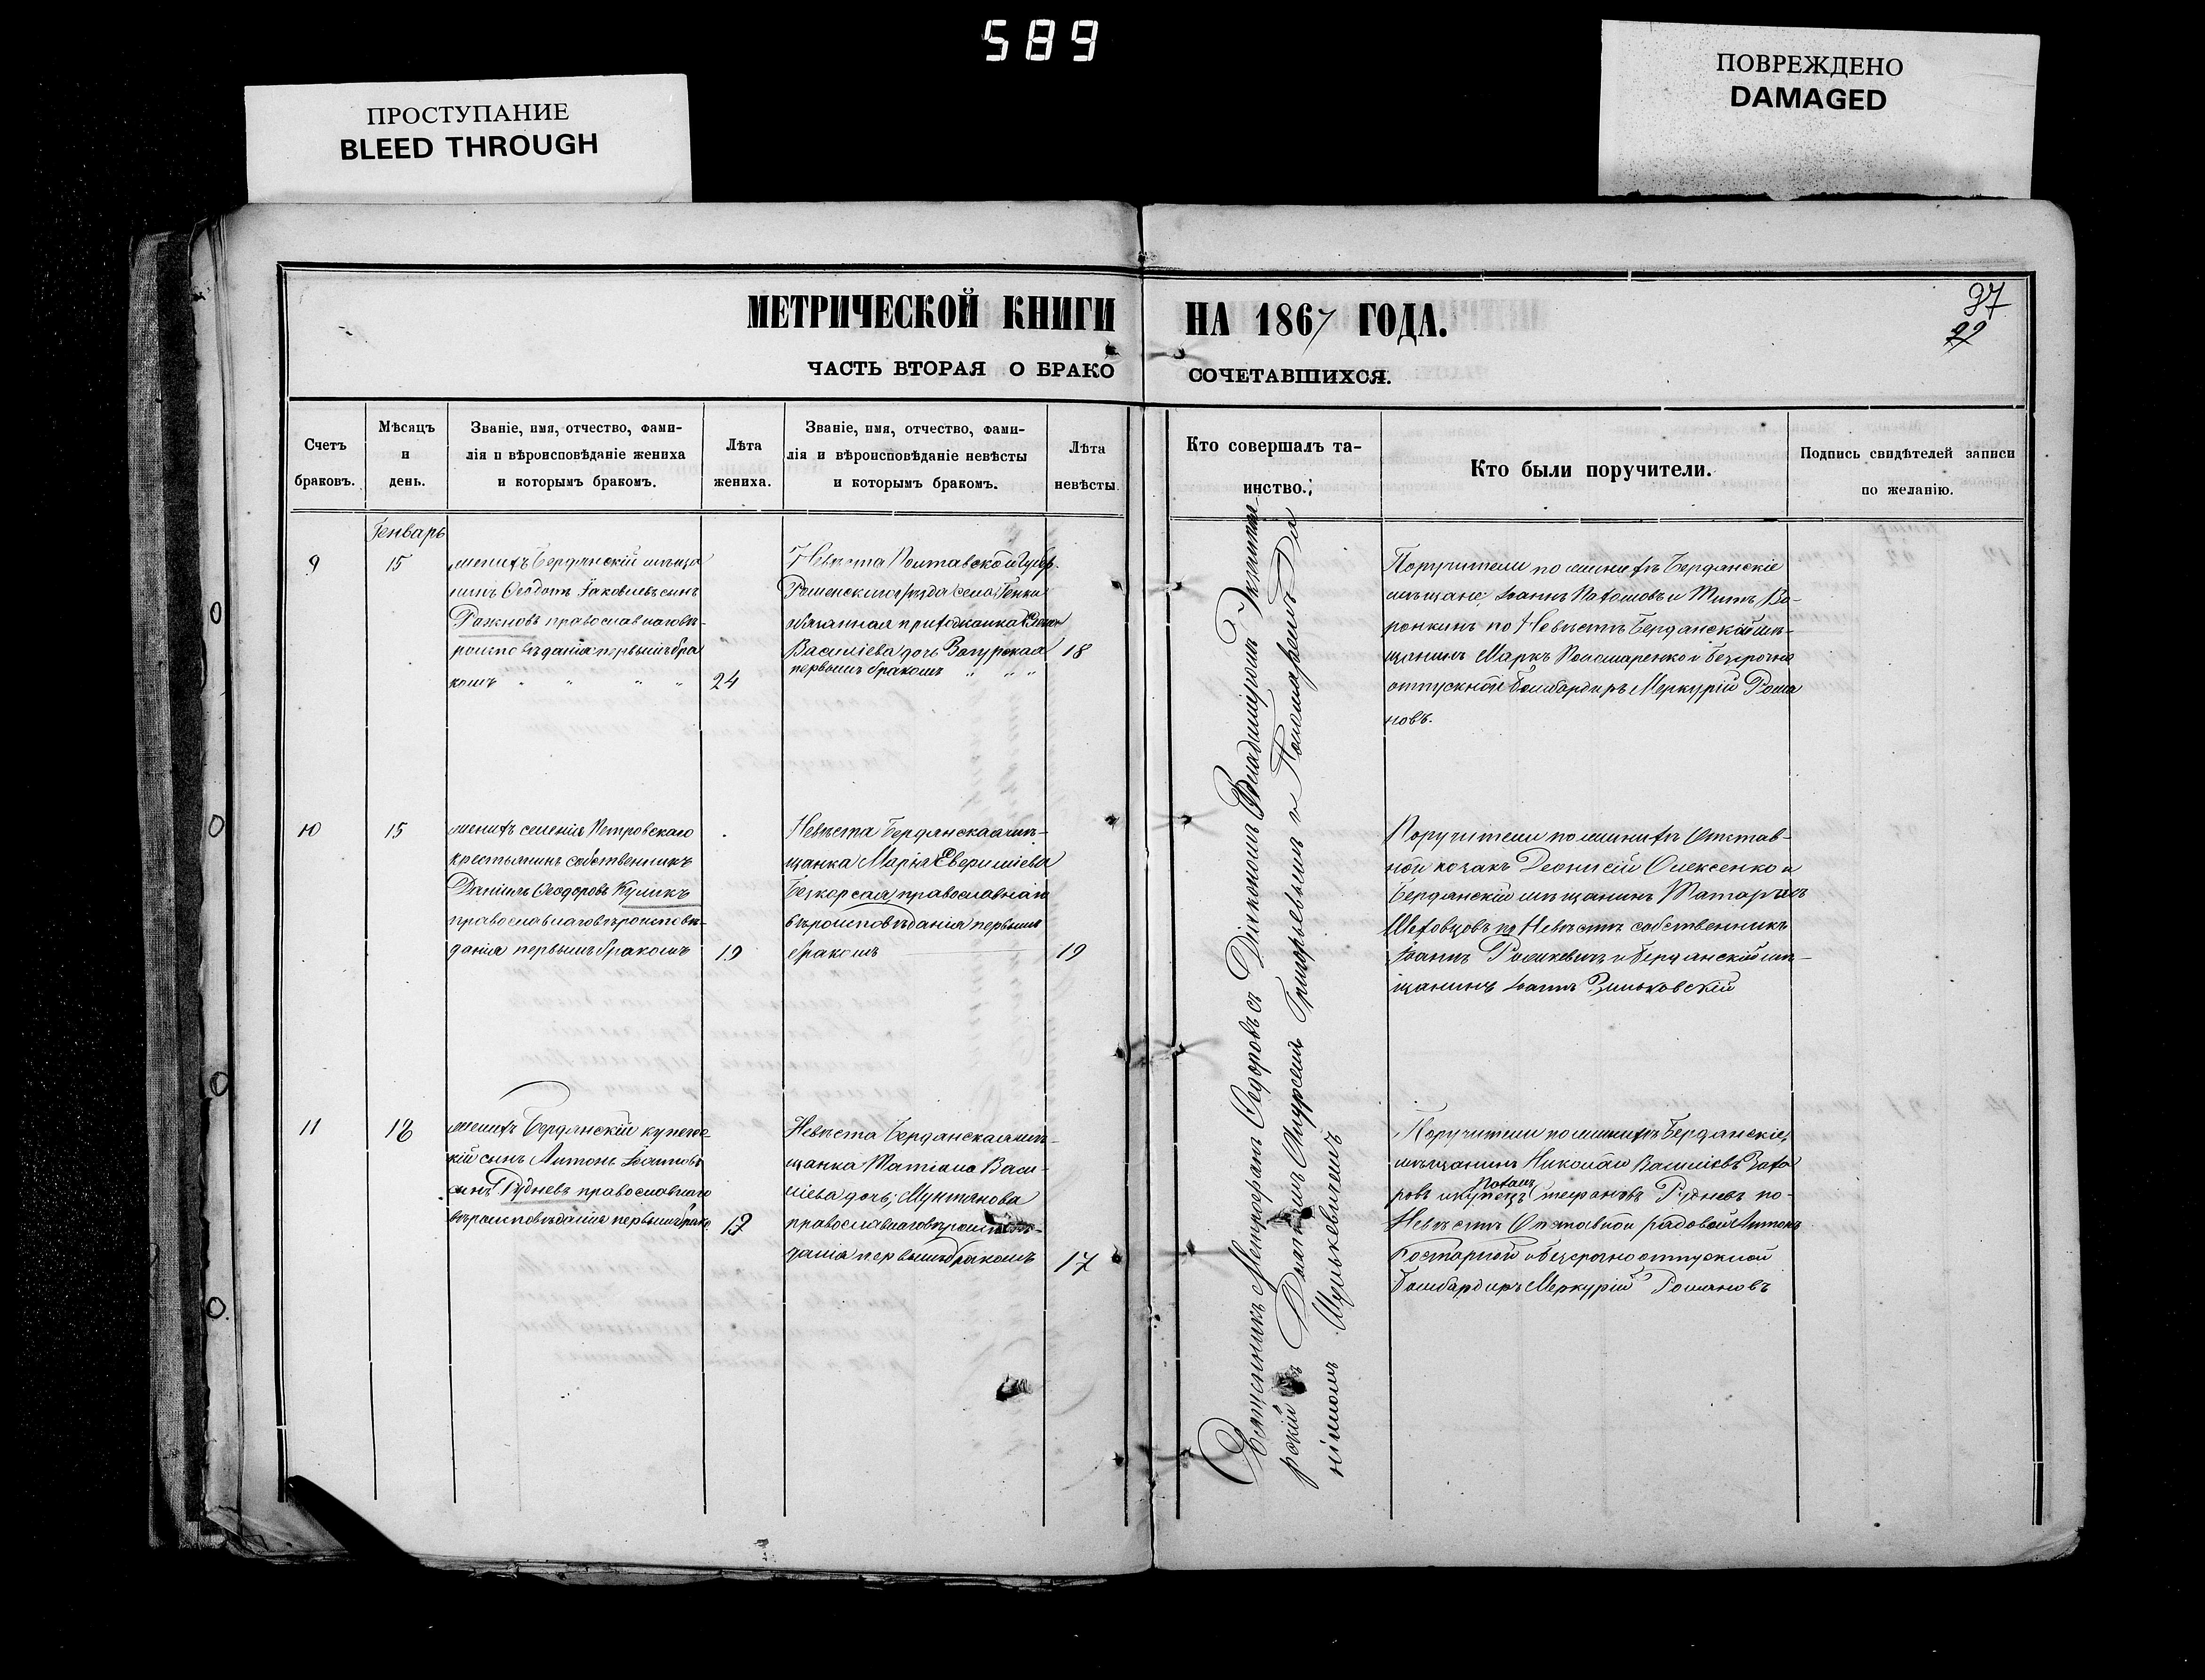 589
ПРОСТУПАНИЕ
BLEED THROUGH
ПОВРЕЖДЕНО
DAMAGED
МЕТРИЧЕСКОЙ КНИГИ
НА 1867 ГОДА.
97
22
ЧАСТЬ ВТОРАЯ О БРАКО
СОЧЕТАВШИХСЯ.
Счетъ
браковъ.
Мѣсяцъ
и
день.
Званіе, имя, отчество, фами-
лія и вѣроисповѣданіе жениха
и которымъ бракомъ.
Лѣта
жениха.
Званіе, имя, отчество, фами-
лія и вѣроисповѣданіе невѣсты
и которымъ бракомъ.
Лѣта
невѣсты.
Кто совершалъ та-
инство.
Кто были поручители.
Подпись свидѣтелей записи
по желанію.
Генварь
9
15
женихъ Бердянскій мѣща
нинъ Ѳеодотъ Іаковлевъ сынъ
православнаго вѣ-
роисповѣданія первымъ бра
комъ
24
Невѣста Полтавской Губер.
Роменскаго уѣзда села
Васильева дочь Загурская
первымъ бракомъ
18
Поручители по женихѣ Бердянскіе
мѣщане, Іоаннъ и Титъ Во-
ронкинъ по Невѣстѣ Бердянскій мѣ-
щанинъ Маркъ Пономаренко и безсрочно
отпускной бомбардиръ Меркурій Рома
новъ.
10
15
женихъ селенія Петровскаго
крестьянинъ собственникъ
Даніилъ Ѳеодоровъ Куликъ
православнаго вѣроисповѣ-
данія первымъ бракомъ
19
Невѣста Бердянская мѣ-
щанка Марія
православнаго
вѣроисповѣданія первымъ
бракомъ
19
Поручители по женихѣ Отстав-
ной козакъ Деонисій Олексенко и
Бердянскій мѣщанинъ
по Невѣстѣ собственникъ
Іоаннъ и Бердянскій мѣ-
щанинъ Іоаннъ Зиньковскій
11
18
женихъ Бердянскій купече-
кій сынъ Антонъ Іоанновъ
сынъ Рудневъ православнаго
вѣроисповѣданія первымъ брако
19
Невѣста Бердянская мѣ-
щанка Татіана Васи-
ліева дочь, Мунтянова
православнаго вѣроисповѣ-
данія первымъ бракомъ
17
Поручители по женихѣ Бердянскіе,
мѣщанинъ Николай Василіевъ Заха
ровъ и купецъ Стефановъ Рудневъ по-
Невѣстѣ Отставной рядовой Антонъ
и безсрочно отпускной
Бомбардиръ Меркурій Романовъ
Священникъ Митрофанъ Ѳедоровъ съ Діакономъ Владиміромъ
Григорьевымъ и Пономаремъ